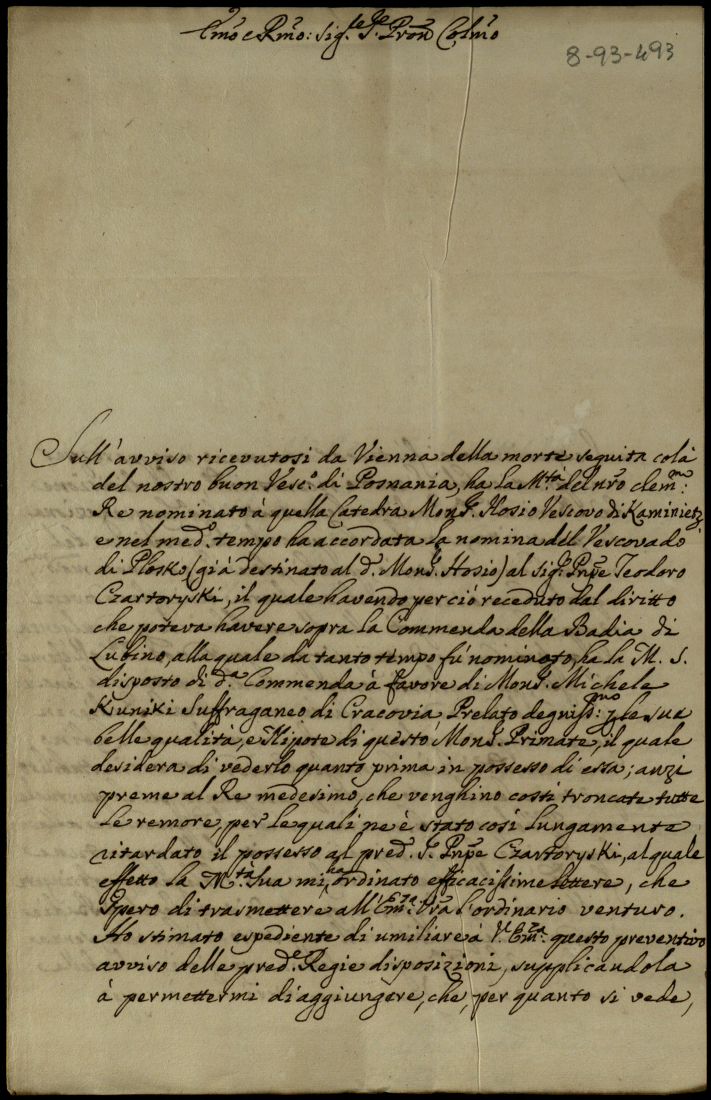 Emo e Rmo: Sig.re Pe. Pron Colmo
8-93-493
Sull'avviso ricevutosi da Vienna della morte seguita colà
del nostro buon Vesc.o di Posnania, ha la M.tà del nro clem.mo:
Re nominato à quella Catedra Mons.r Hosio Vescovo di Kaminietz,
e nel med.o tempo ha accordata la nomina del Vescovado
di Plosko (già destinato al d.o Mons.r Hosio) al sig.r Pnpe Teodoro
Czartoryski, il quale havendo perciò receduto dal diritto
che poteva havere sopra la Commenda della Badia di
Lubino, alla quale da tanto tempo fù nominato, ha la M. S.
disposto di d.a Commenda à favore di Mons.r Michele
Kuniki Suffraganeo di Cracovia, Prelato degniss.mo: p le sue
belle qualità, e Nipote di questo Mons.r Primate, il quale
desidera di vederlo quanto prima in possesso di essa; anzi
preme al Re medesimo, che venghino costì troncate tutte
le remore, per le quali ne è stato così lungamente
ritardato il possesso al pred.o S.r Pnpe Czartoryski, al quale
effetto la M.tà Sua mi ha ordinato efficacissime lettere, che
spero di trasmettere all'Em.za Vra l'ordinario venturo.
Ho stimato espediente di umiliare à V.ra Em.za questo preventivo
avviso delle pred.e Regie disposizioni, supplicandola
à permettermi di aggiungere, che, per quanto si vede,